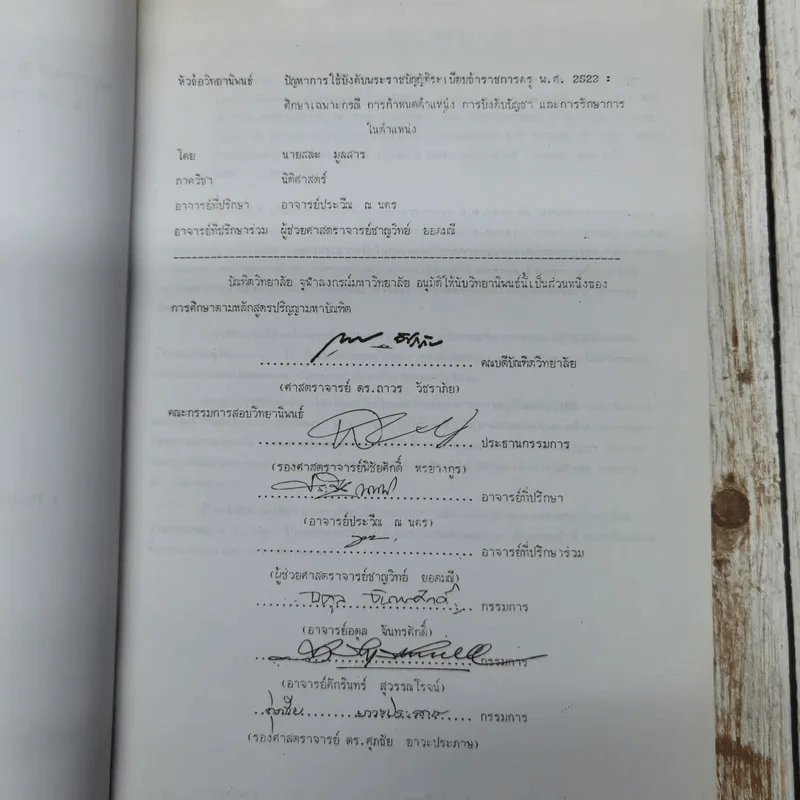 หัวข้อวิทยานิพนธ์ ปัญหาการใช้บังคับพระราชบัญญัติระเบียบข้าราชการครู พ.ศ. 2523 :
ศึกษาเฉพาะกรณี การกำหนดตำแหน่ง การบังคับบัญชา และการรักษาการ
ในตำแหน่ง
โดย นายสละ มูลสาร
ภาควิชา นิติศาสตร์
อาจารย์ที่ปรึกษา อาจารย์ประวีณ ณ นคร
อาจารย์ที่ปรึกษาร่วม ผู้ช่วยศาสตราจารย์ชาญวิทย์ ยอดมณี
บัณฑิตวิทยาลัย จุฬาลงกรณ์มหาวิทยาลัย อนุมัติให้นับวิทยานิพนธ์นี้เป็นส่วนหนึ่งของ
การศึกษาตามหลักสูตรปริญญามหาบัณฑิต
คณบดีบัณฑิตวิทยาลัย
(ศาสตราจารย์ ดร.ถาวร วัชราภัย)
คณะกรรมการสอบวิทยานิพนธ์
ประธานกรรมการ
(รองศาสตราจารย์พิชัยศักดิ์ หรยางกูร)
อาจารย์ที่ปรึกษา
(อาจารย์ประวีณ ณ นคร)
อาจารย์ที่ปรึกษาร่วม
(ผู้ช่วยศาสตราจารย์ชาญวิทย์ ยอดมณี)
กรรมการ
(อาจารย์อดุล จันทรศักดิ์)
กรรมการ
(อาจารย์ศักรินทร์ สุวรรณโรจน์)
กรรมการ
(รองศาสตราจารย์ ดร.ศุภชัย ยาวะประภาษ)